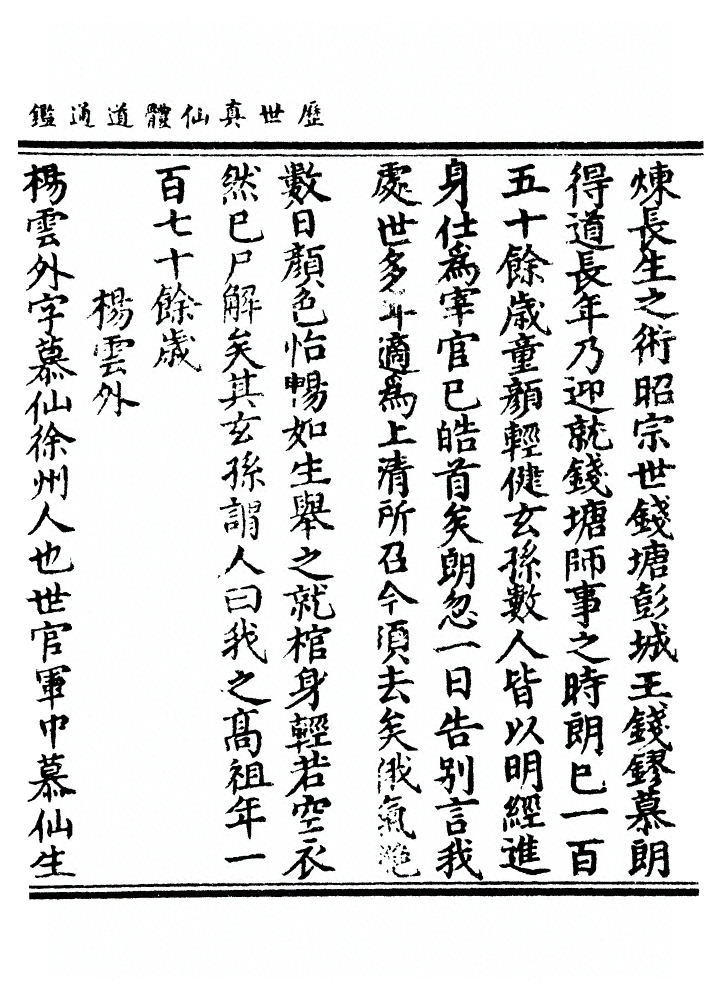 歷世真仙體道通鑑
煉長生之術昭宗世錢塘彭城王錢鏐慕朗
得道長年乃迎就錢塘師事之時朗已一百
五十餘歲童顏輕健玄孫數人皆以明經進
身仕爲宰官已皓首矣朗忽一日告別言我
處世多年適爲上清所召今須去矣俄氣絕
數日顏色怡暢如生舉之就棺身輕若空衣
然已尸解矣其玄孫謂人曰我之高祖年一
百七十餘歲
楊雲外
楊雲外字慕仙徐州人也世官軍中慕仙生